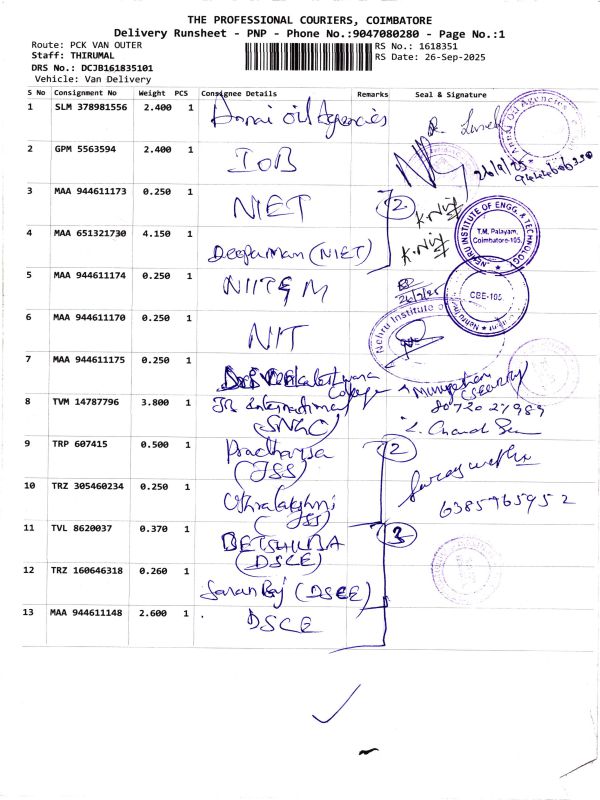 THE PROFESSIONAL COURIERS, COIMBATORE
Delivery Runsheet - PNP - Phone No.:9047080280 - Page No.:1
Route: PCK VAN OUTER
RS No.: 1618351
Staff: THIRUMAL
RS Date: 26-Sep-2025
DRS No.: DCJB161835101
Vehicle: Van Delivery
S No Consignment No Weight PCS Consignee Details Remarks Seal & Signature
1 SLM 378981556 2.400 1 Annai Oil Agencies
2 GPM 5563594 2.400 1 IOB
26/9/25
3 MAA 944611173 0.250 1 NIET 2
4 MAA 651321730 4.150 1 Deepaman (NIET)
NEHRU INSTITUTE OF ENGG. & TECHNOLOGY
T.M. Palayam,
Coimbatore-105.
5 MAA 944611174 0.250 1 NIITEM
CBE-105
6 MAA 944611170 0.250 1 NIT
Nehru Institute of
7 MAA 944611175 0.250 1
College
Murugethan
(Security)
8 TVM 14787796 3.800 1 JR International
(SNGC)
9 TRP 607415 0.500 1
(JSS) 2
10 TRZ 305460234 0.250 1 Uthralakshmi
(JSS)
6385965952
11 TVL 8620037 0.370 1
(DSCE) 3
12 TRZ 160646318 0.260 1 Saran Raj (DSCE)
13 MAA 944611148 2.600 1 DSCE